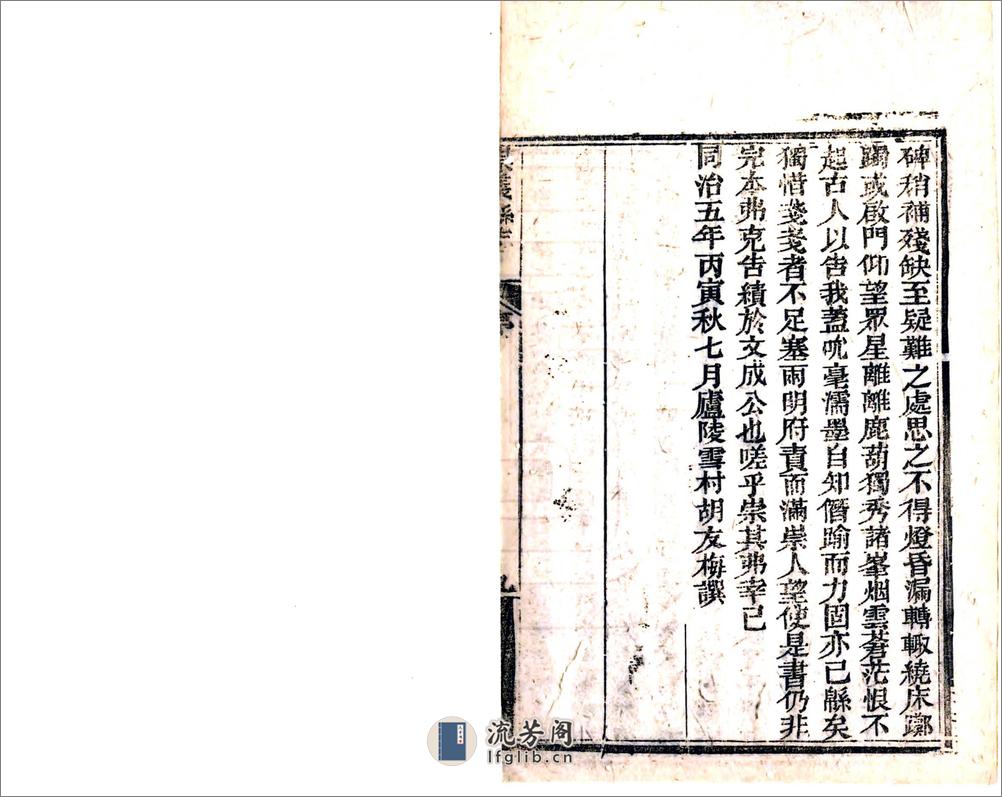 碑稍補殘缺至疑難之處思之不得燈昏漏轉輙繞床躑
躅或啟門仰望眾星離離鹿葫獨秀諸峯烟雲蒼茫恨不
起古人以告我蓋吮毫濡墨自知僭踰而力固亦已緜矣
獨惜戔戔者不足塞兩明府責而滿崇人望使是書仍非
完本弗克告績於文成公也嗟乎崇其弗幸已
同治五年丙寅秋七月廬陵雪村胡友梅譔
崇義縣志
序
九
流芳阁
lfglib.cn